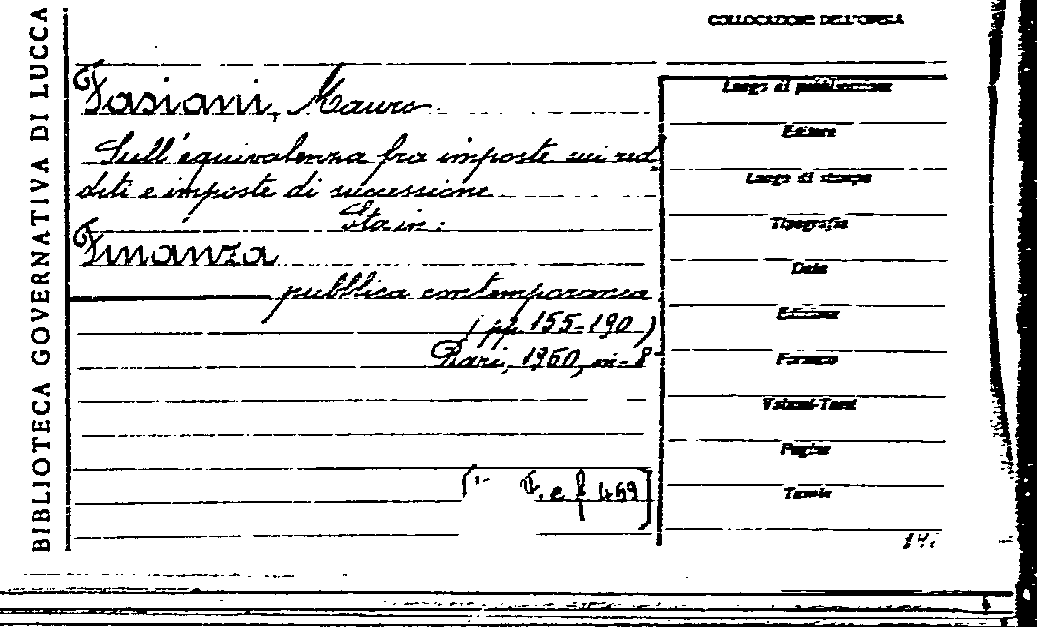 BIBLIOTECA GOVERNATIVA DI LUCCA
COLLOCAZIONE DELL'OPERA
Fasiani, Mauro
Sull'equivalenza fra imposte sui red
diti e imposte di successione
Sta in:
Finanza
pubblica contemporanea
(pp. 155-190)
Bari, 1950, in-8
F. e f 469]
Luogo di pubblicazione
Editore
Luogo di stampa
Tipografia
Data
Edizione
Formato
Volumi-Tomi
Pagine
Tavole